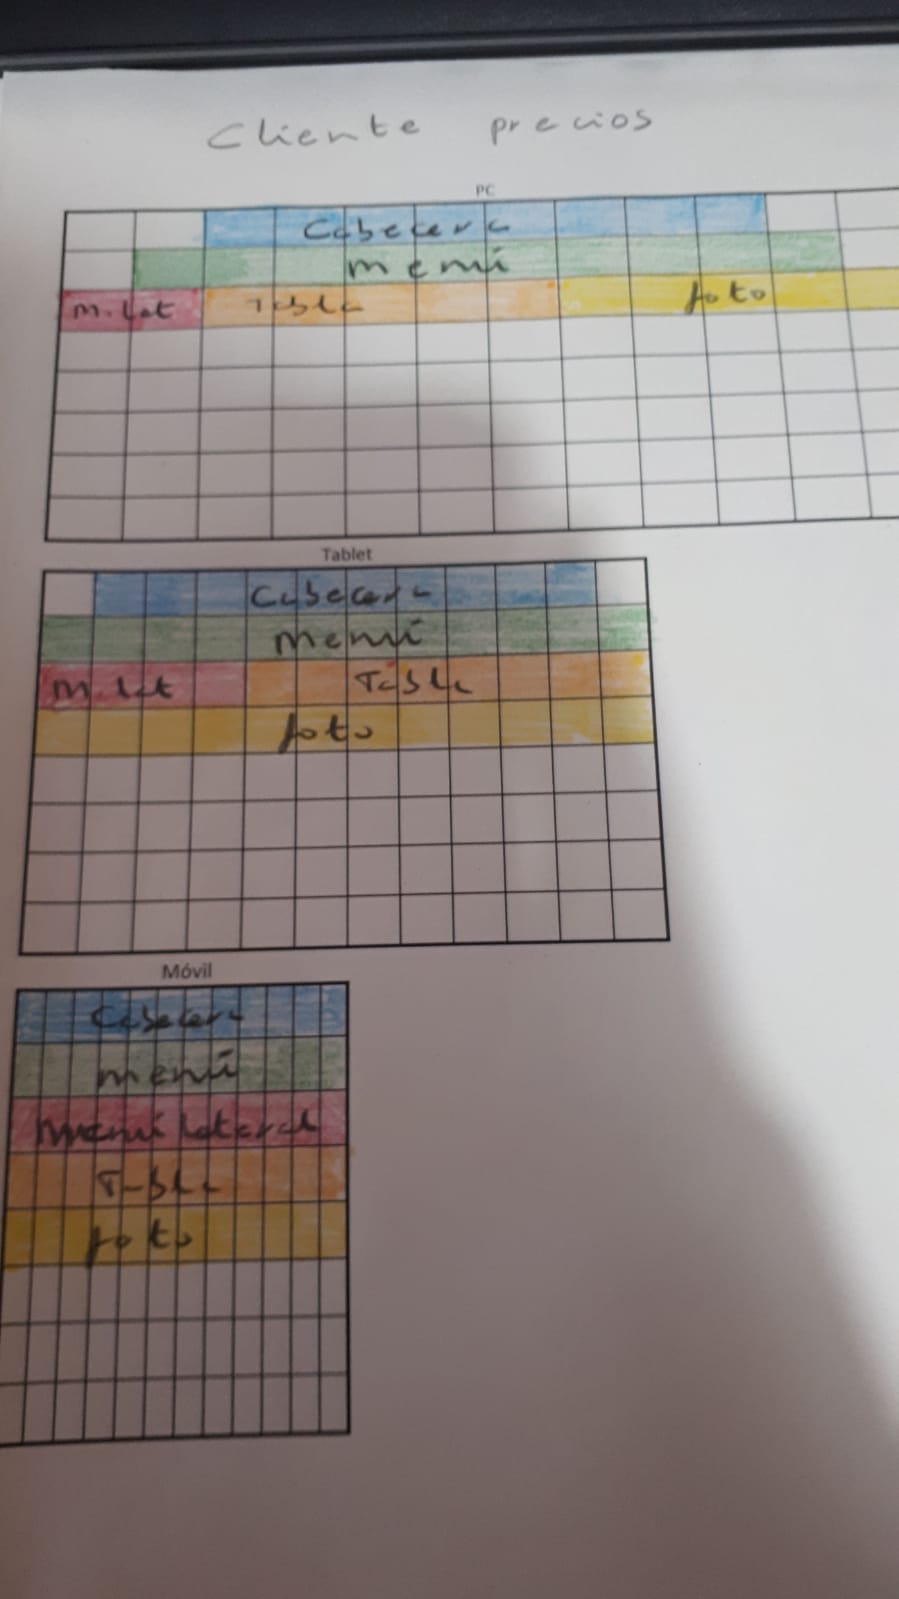 Cliente precios
PC
Cabecera
menú
m. lat Tabla foto
Tablet
Cabecera
menú
m lat Tabla
foto
Móvil
Cabecera
menú
menú lateral
Tabla
foto